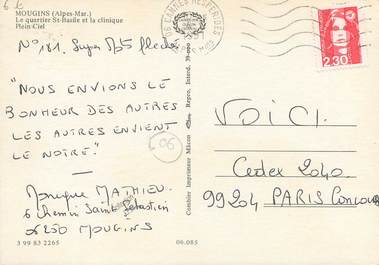 6 €
MOUGINS (Alpes-Mar.)
Le quartier St-Basile et la clinique
Plein-Ciel
N° 181. Super Mots fléchés
"NOUS ENVIONS LE
BONHEUR DES AUTRES
LES AUTRES ENVIENT
LE NOTRE."
06
Monique MATHIEU
6 chemin Saint Sébastien
06250 MOUGINS
3 99 83 2265
06.085
Combier Imprimeur Mâcon
Repro. Interd.
CANNES HESPERIDES
2,30
VOICI.
Cedex 2040
99204 PARIS Concours